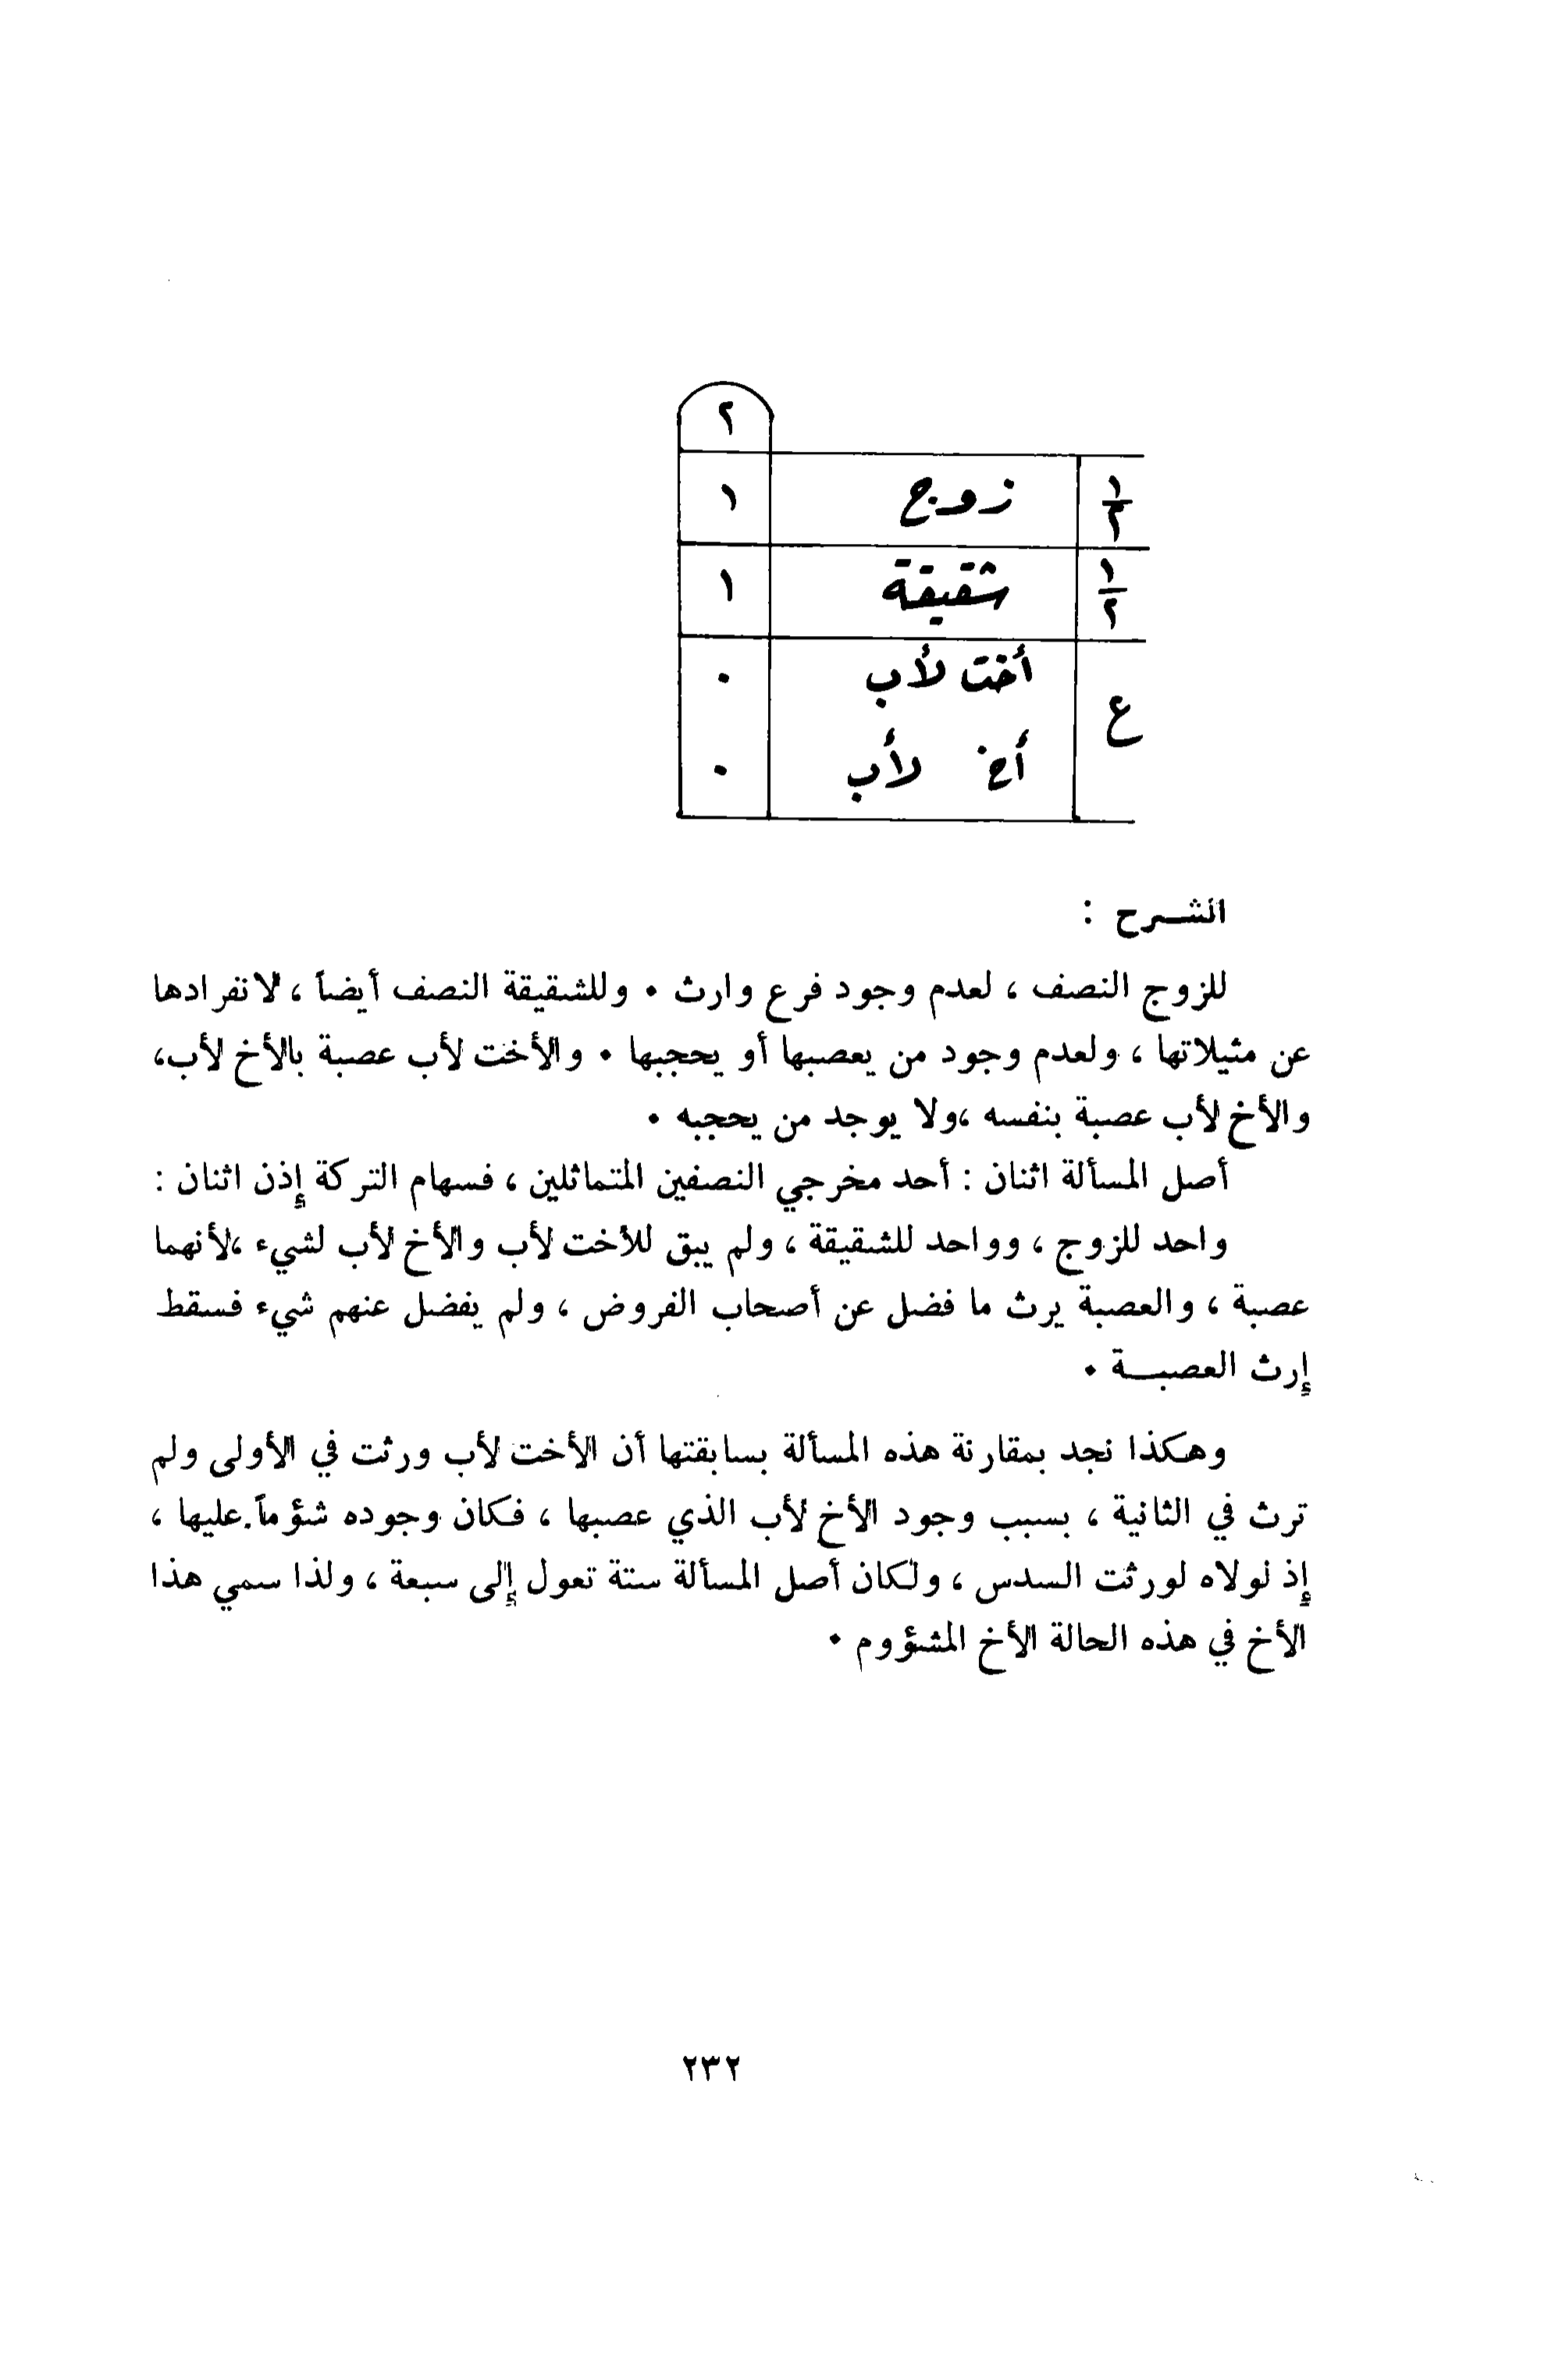 ٢
١/٢ زوج ١
١/٢ شقيقة ١
ع أخت لأب ٠
أخ لأب ٠
الشرح :
للزوج النصف ، لعدم وجود فرع وارث ٠ وللشقيقة النصف أيضاً ، لانفرادها
عن مثيلاتها ، ولعدم وجود من يعصبها أو يحجبها ٠ والأخت لأب عصبة بالأخ لأب،
والأخ لأب عصبة بنفسه ،ولا يوجد من يحجبه ٠
أصل المسألة اثنان : أحد مخرجي النصفين المتماثلين ، فسهام التركة إذن اثنان :
واحد للزوج ، وواحد للشقيقة ، ولم يبق للأخت لأب والأخ لأب لشيء ،لأنهما
عصبة ، والعصبة يرث ما فضل عن أصحاب الفروض ، ولم يفضل عنهم شيء فسقط
إرث العصبة ٠
وهكذا نجد بمقارنة هذه المسألة بسابقتها أن الأخت لأب ورثت في الأولى ولم
ترث في الثانية ، بسبب وجود الأخ لأب الذي عصبها ، فكان وجوده شؤماً.عليها ،
إذ لولاه لورثت السدس ، ولكان أصل المسألة ستة تعول إلى سبعة ، ولذا سمي هذا
الأخ في هذه الحالة الأخ المشؤوم ٠
٢٣٢